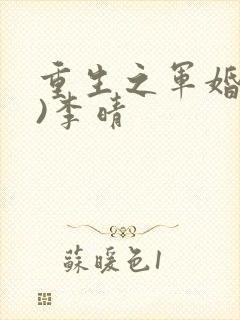 重生之军婚
)李晴
蘇暖色1